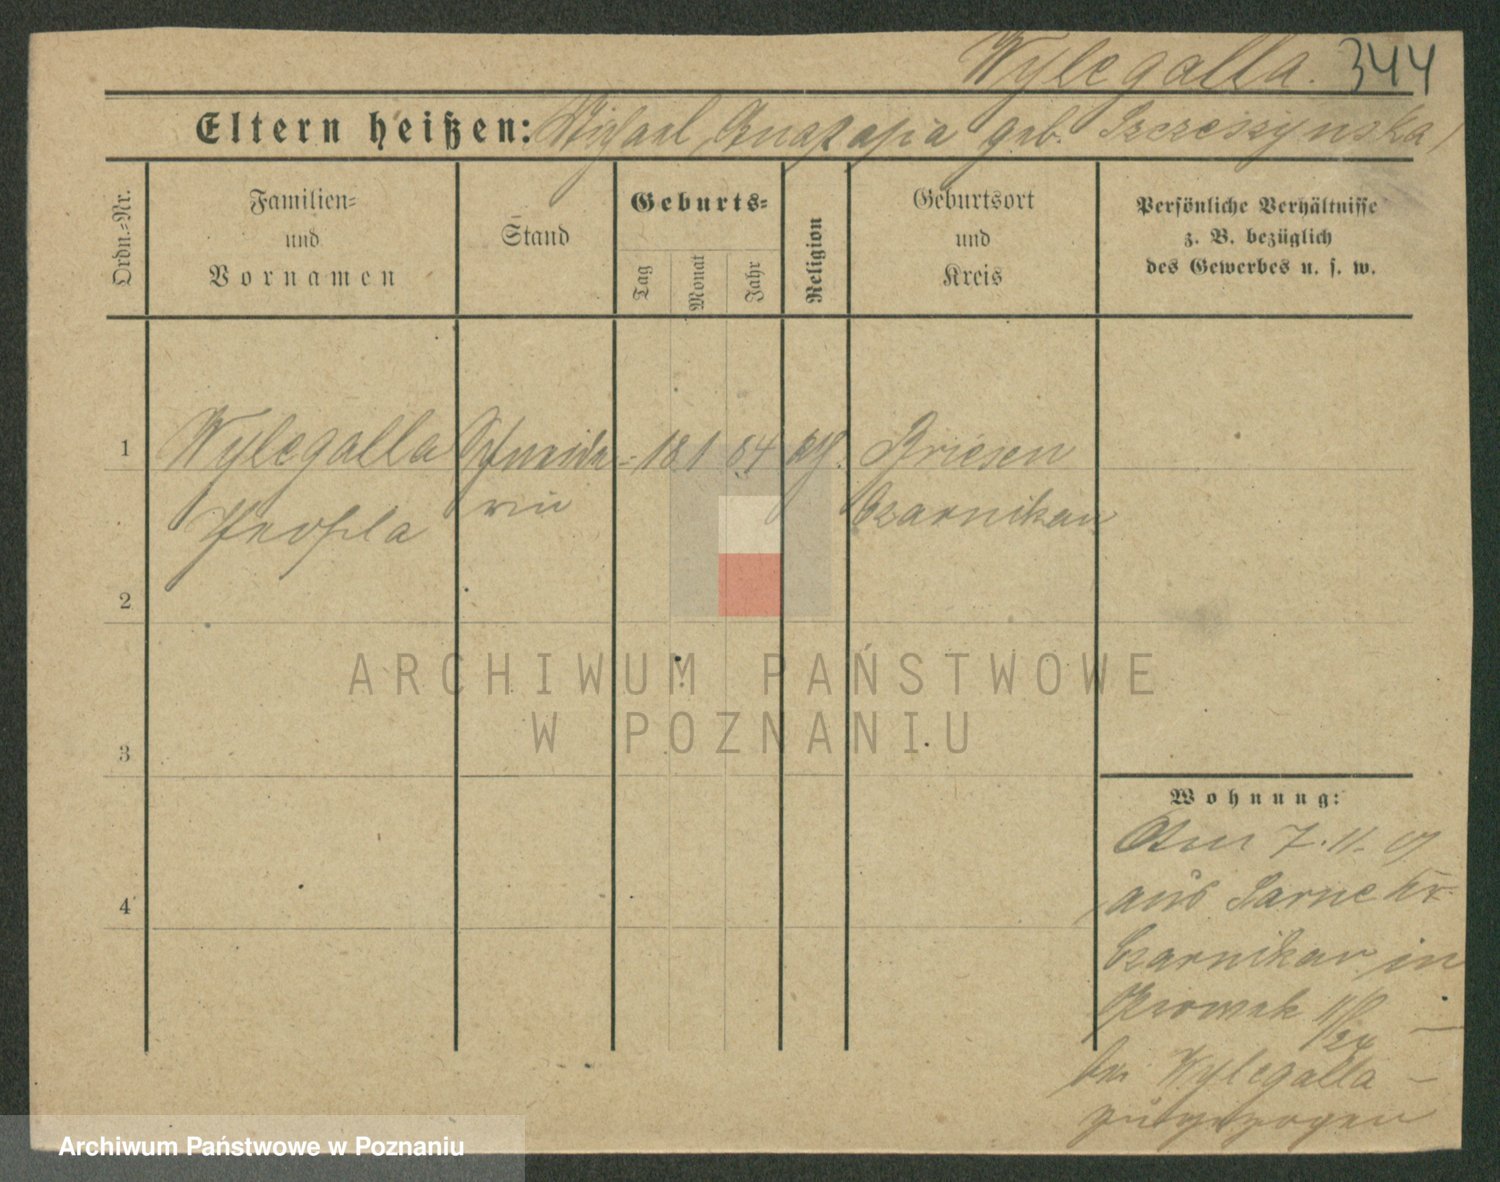 Wylegalla. 344
Eltern heißen: Michael, Anastasia geb. Szczeszynska,
Ordn.-Nr.
Familien-
und
Vornamen
Stand
Geburts-
Tag
Monat
Jahr
Religion
Geburtsort
und
Kreis
Persönliche Verhältnisse
z. B. bezüglich
des Gewerbes u. s. w.
1
Wylegalla Schneide- 18 1 84 Briesen
Theofila rin Czarnikau
2
3
4
Wohnung:
Am 7. 11. 07
aus Sarne Kr.
Czarnikau in
bei Wylegalla –
zugezogen
ARCHIWUM PAŃSTWOWE
W POZNANIU
Archiwum Państwowe w Poznaniu